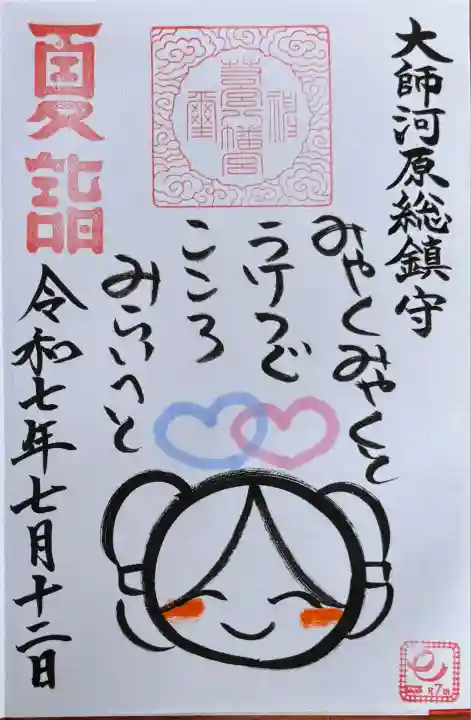 大師河原総鎮守
みやくみやくと
うけつぐ
こころ
みらいへと
夏詣
令和七年七月十二日